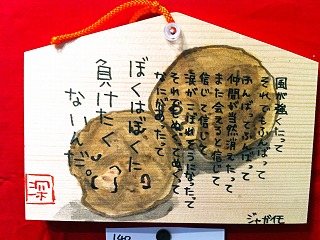 風が強くたって
それでもふんばって
ふんばって
仲間が当然消えたって
また会えると信じて
信じて信じて
涙がこぼれそうになったって
それでもぬぐってぬぐって
なにがあったって
ぼくはぼくに
負けたく
ないんだ。
ジャガイモ
140